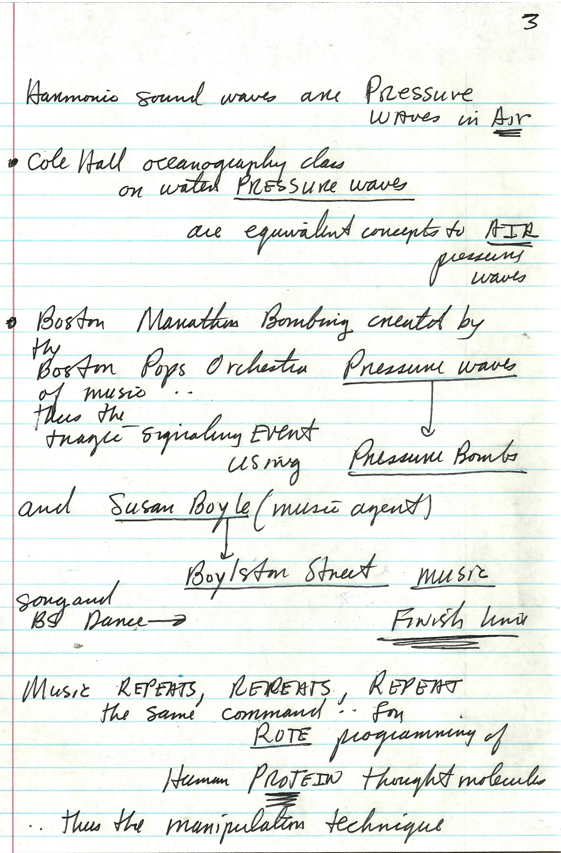 3
Harmonic sound waves are Pressure
waves in Air
• Cole Hall oceanography class
on water PRESSURE waves
are equivalent concepts to AIR
pressure
waves
• Boston Marathon Bombing created by
the
Boston Pops Orchestra Pressure waves
of music ..
thus the
tragic signaling EVENT
using Pressure Bombs
and Susan Boyle (music agent)
Boylston Street music
song and
BS Dance → Finish line
Music REPEATS, REPEATS, REPEAT
the same command .. for
ROTE programming of
Human PROTEIN thought molecules
.. thus the manipulation technique